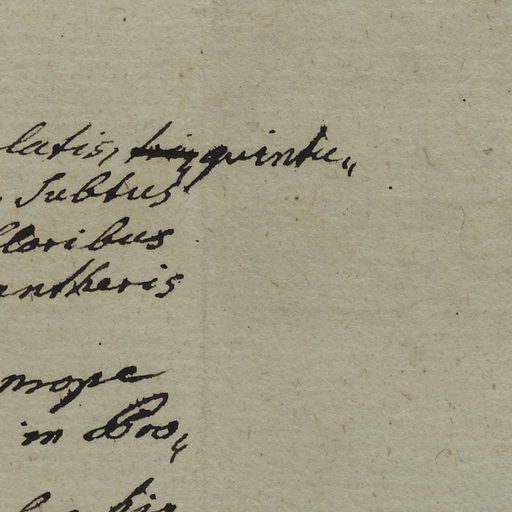 latis, quintu„
subtus
floribus
antheris
prope
in Bro„